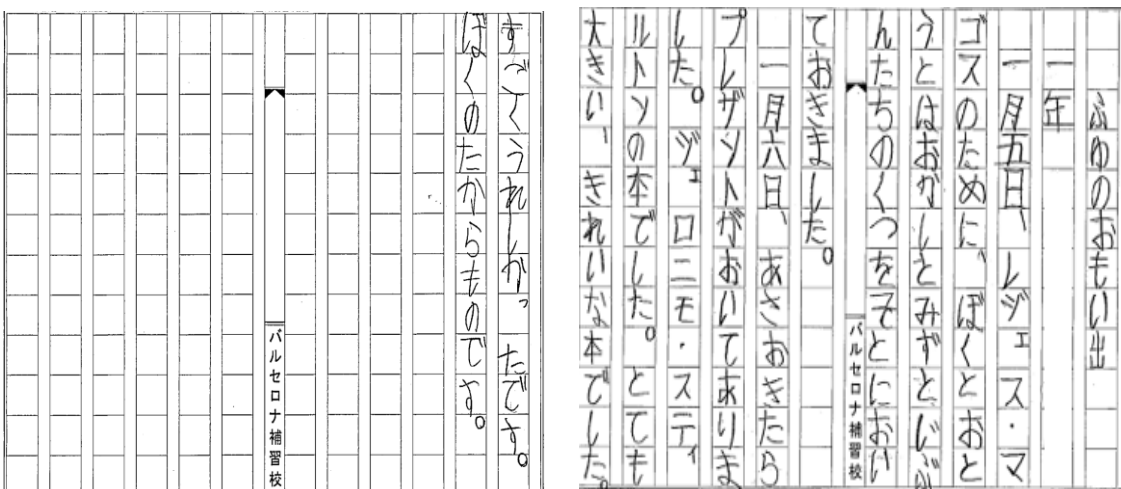 ふゆのおもい出
一年
一月五日、レヅェス・マ
ゴスのために、ぼくとおと
うとはおかしとみずとじぶ
んたちのくつをそとにおい
ておきました。
一月六日、あさおきたら
プレザントがおいてありま
した。ヅェロニモ・スティ
ルトンの本でした。とても
大きい、きれいな本でした。
バルセロナ補習校
すごくうれしかったです。
ぼくのたからものです。
バルセロナ補習校